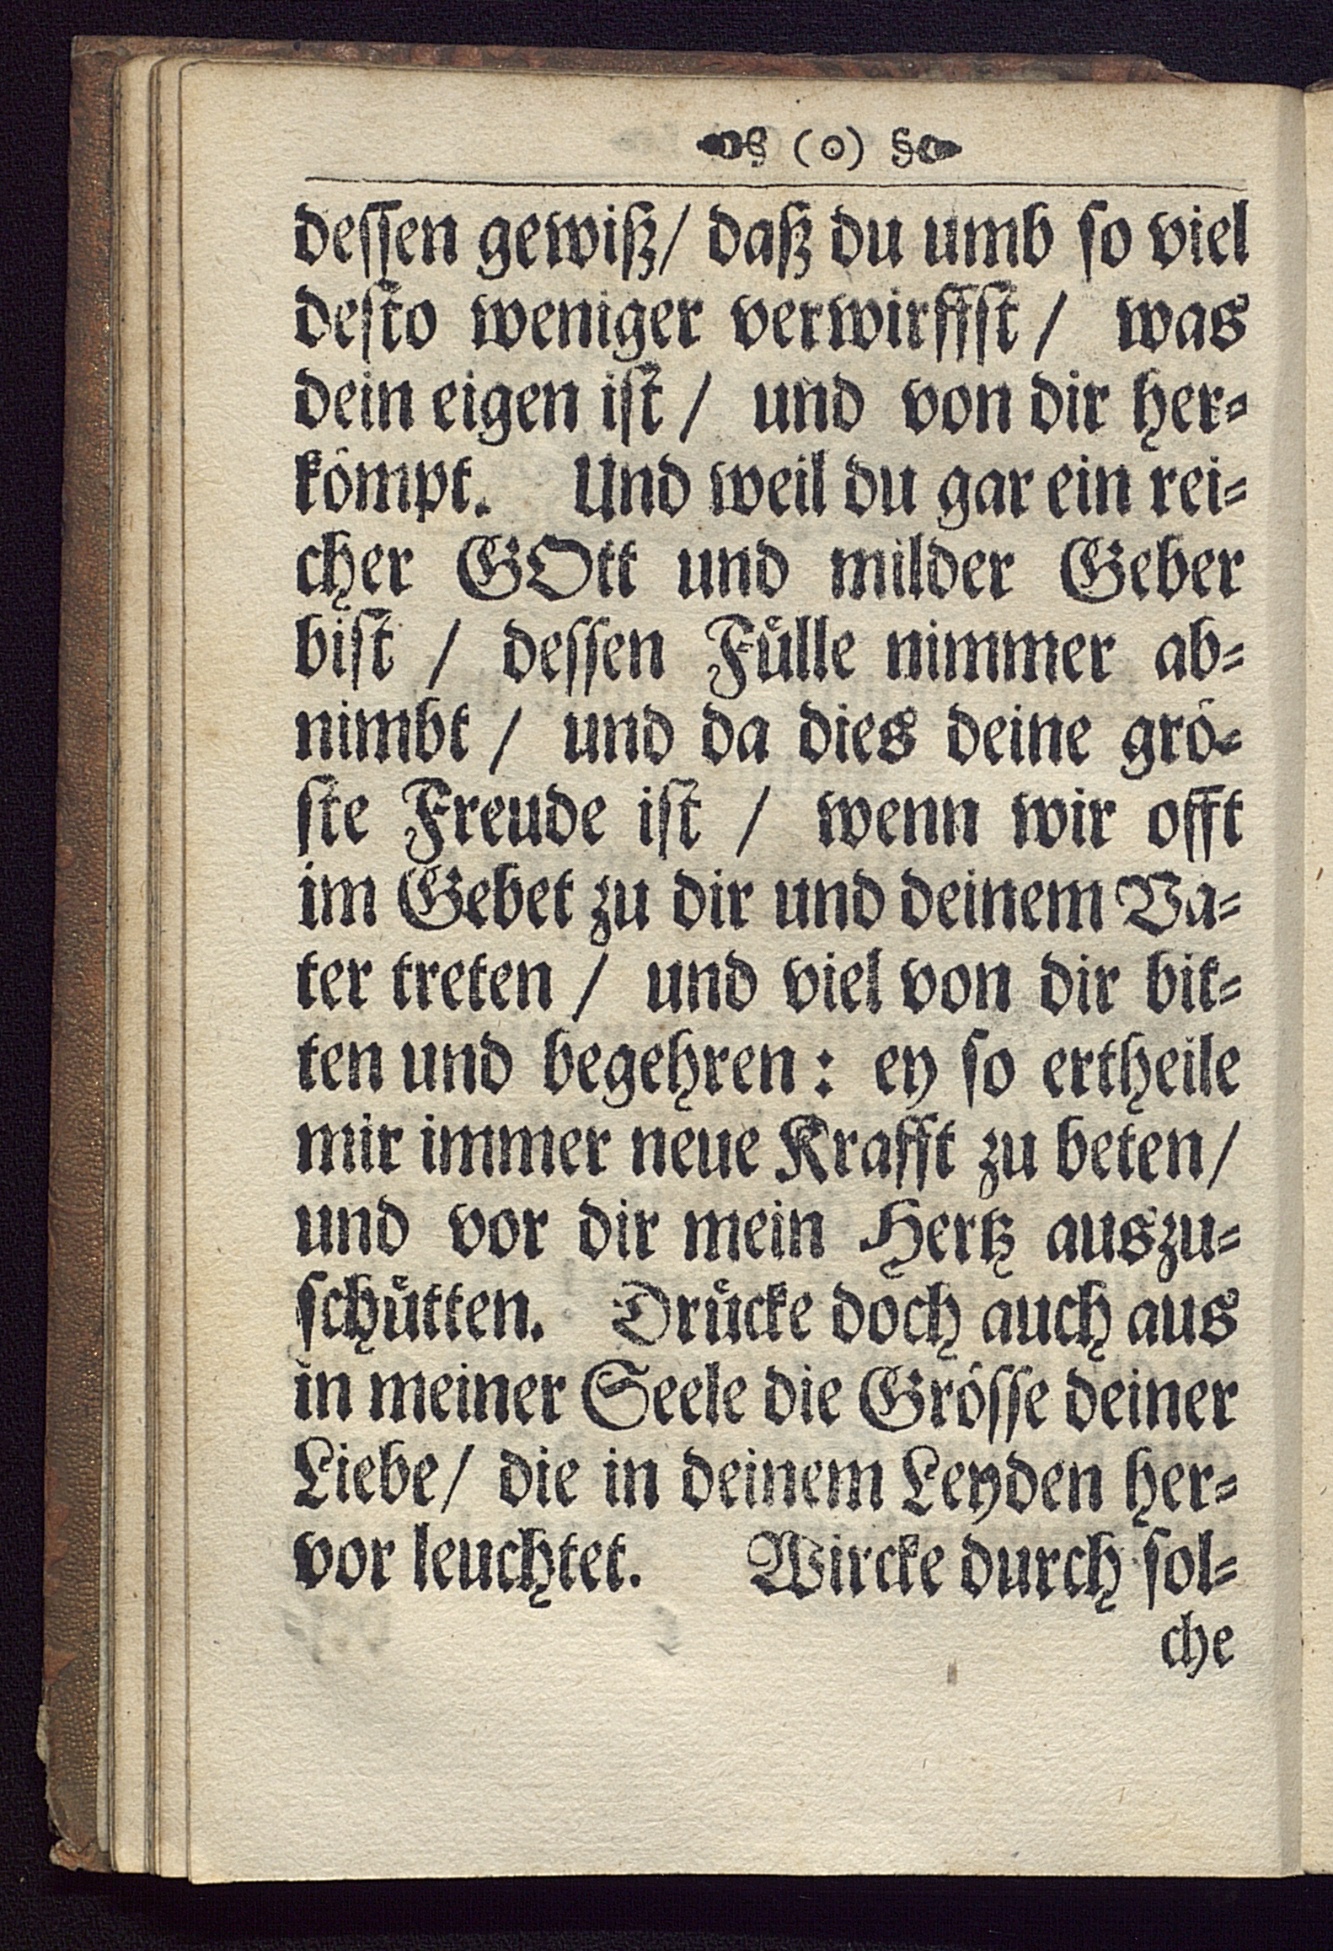 § (o) §
dessen gewiß/ daß du umb so viel
desto weniger verwirffst / was
dein eigen ist / und von dir her-
kömpt. Und weil du gar ein rei-
cher GOtt und milder Geber
bist / dessen Fülle nimmer ab-
nimbt / und da dies deine grö-
ste Freude ist / wenn wir offt
im Gebet zu dir und deinem Va-
ter treten / und viel von dir bit-
ten und begehren: ey so ertheile
mir immer neue Krafft zu beten/
und vor dir mein Hertz auszu-
schütten. Drücke doch auch aus
in meiner Seele die Grösse deiner
Liebe/ die in deinem Leyden her-
vor leuchtet. Wircke durch sol-
che